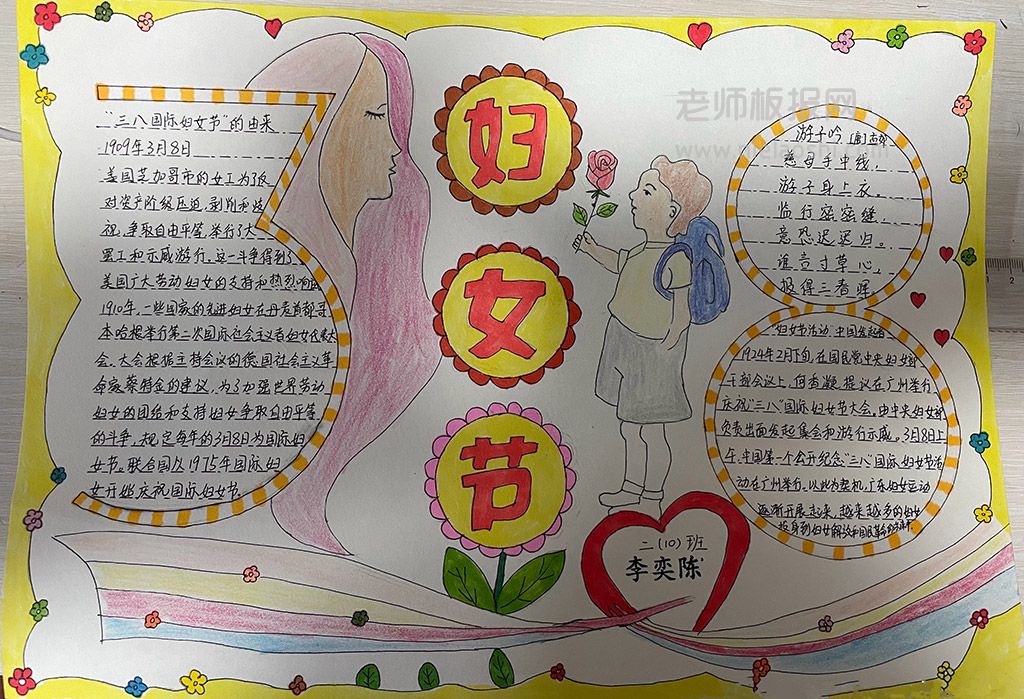 "三八国际妇女节"的由来
1909年3月8日
美国芝加哥市的女工为了反
对资产阶级压迫,剥削和歧
视,争取自由平等,举行了大
罢工和示威游行。这一斗争得到了
美国广大劳动妇女的支持和热烈响应
1910年,一些国家的先进妇女在丹麦首都哥
本哈根举行第二次国际社会主义者妇女代表大
会。大会根据主持会议的德国社会主义革
命家蔡特金的建议,为了加强世界劳动
妇女的团结和支持妇女争取自由平等
的斗争,规定每年的3月8日为国际妇
女节。联合国从1975年国际妇
女开始庆祝国际妇女节
妇
女
节
老师板报网
游子吟 [唐]孟郊
慈母手中线,
游子身上衣。
临行密密缝,
意恐迟迟归。
谁言寸草心,
报得三春晖
妇女节活动 中国发起者
1924年2月下旬,在国民党中央妇女部
干部会议上,何香凝提议在广州举行
庆祝"三八"国际妇女节大会。由中央妇女部
负责出面发起集会和游行示威。3月8日上
午,中国第一个公开纪念"三八"国际妇女节活
动在广州举行。以此为契机,广东妇女运动
逐渐开展起来,越来越多的妇女
投身到妇女解放和国民革命的
二(10)班
李奕陈